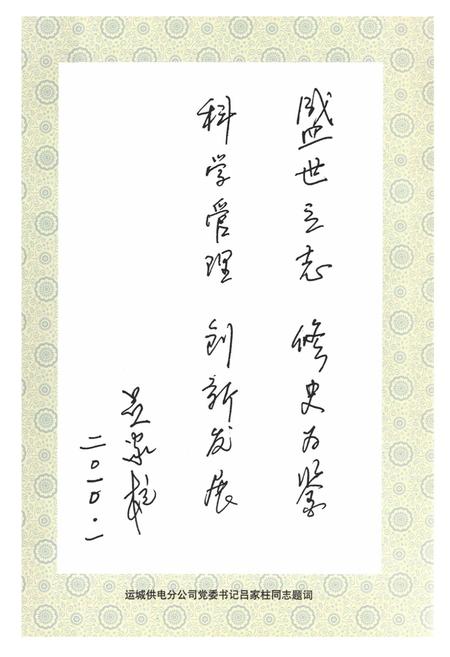 盛世立志 修史为鉴
科学管理 创新发展
吕家柱
二〇一〇.一
运城供电分公司党委书记吕家柱同志题词